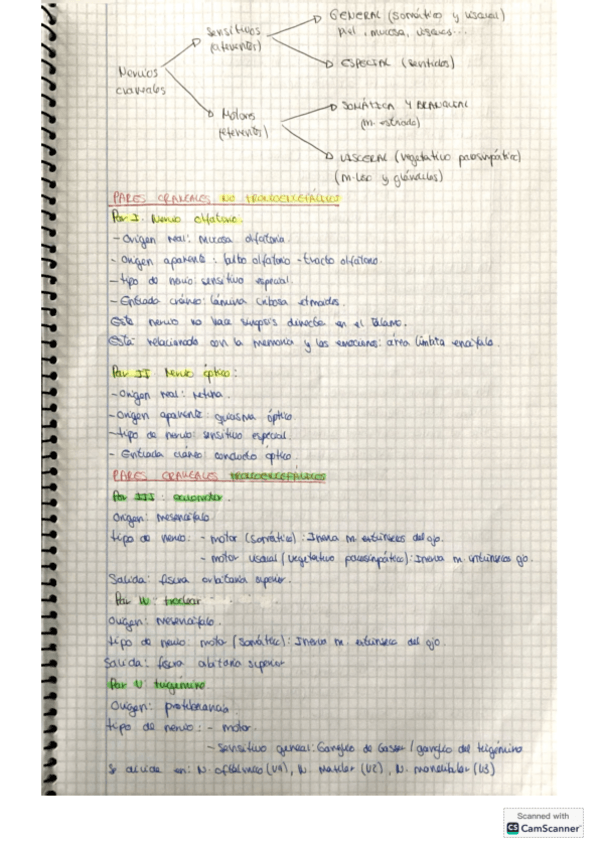 Nervios craneales
Sensitivos (aferentes)
GENERAL (somático y visceral)
Piel, mucosa, vísceras...
ESPECIAL (sentidos)
Motores (eferentes)
SOMÁTICA Y BRANQUIAL
(m. estriado)
VISCERAL (vegetativo parasimpático)
(m. liso y glándulas)
PARES CRANEALES NO TRONCOENCEFÁLICOS
Par I. Nervio olfatorio.
- Origen real: mucosa olfatoria.
- Origen aparente: bulbo olfatorio - tracto olfatorio.
- tipo de nervio: sensitivo especial.
- Entrada cráneo: lámina cribosa etmoides.
Este nervio no hace sinapsis directa en el tálamo.
Está relacionado con la memoria y las emociones: área límbica encéfalo.
Par II. Nervio óptico:
- Origen real: retina.
- Origen aparente: quiasma óptico.
- tipo de nervio: sensitivo especial.
- Entrada cráneo conducto óptico.
PARES CRANEALES TRONCOENCEFÁLICOS
Par III: oculomotor.
Origen: mesencéfalo
tipo de nervio: - motor (somático): Inerva m. extrínsecos del ojo.
- motor visceral (vegetativo parasimpático): Inerva m. intrínsecos ojo.
Salida: fisura orbitaria superior.
Par IV: troclear
Origen: mesencéfalo.
tipo de nervio: motor (somático): Inerva m. extrínseco del ojo.
Salida: fisura orbitaria superior
Par V: trigémino.
Origen: protuberancia
tipo de nervio: - motor.
- sensitivo general: Ganglio de Gasser / ganglio del trigémino
Se divide en: N. oftálmico (V1), N. Maxilar (V2), N. mandibular (V3)
Scanned with
CS CamScanner